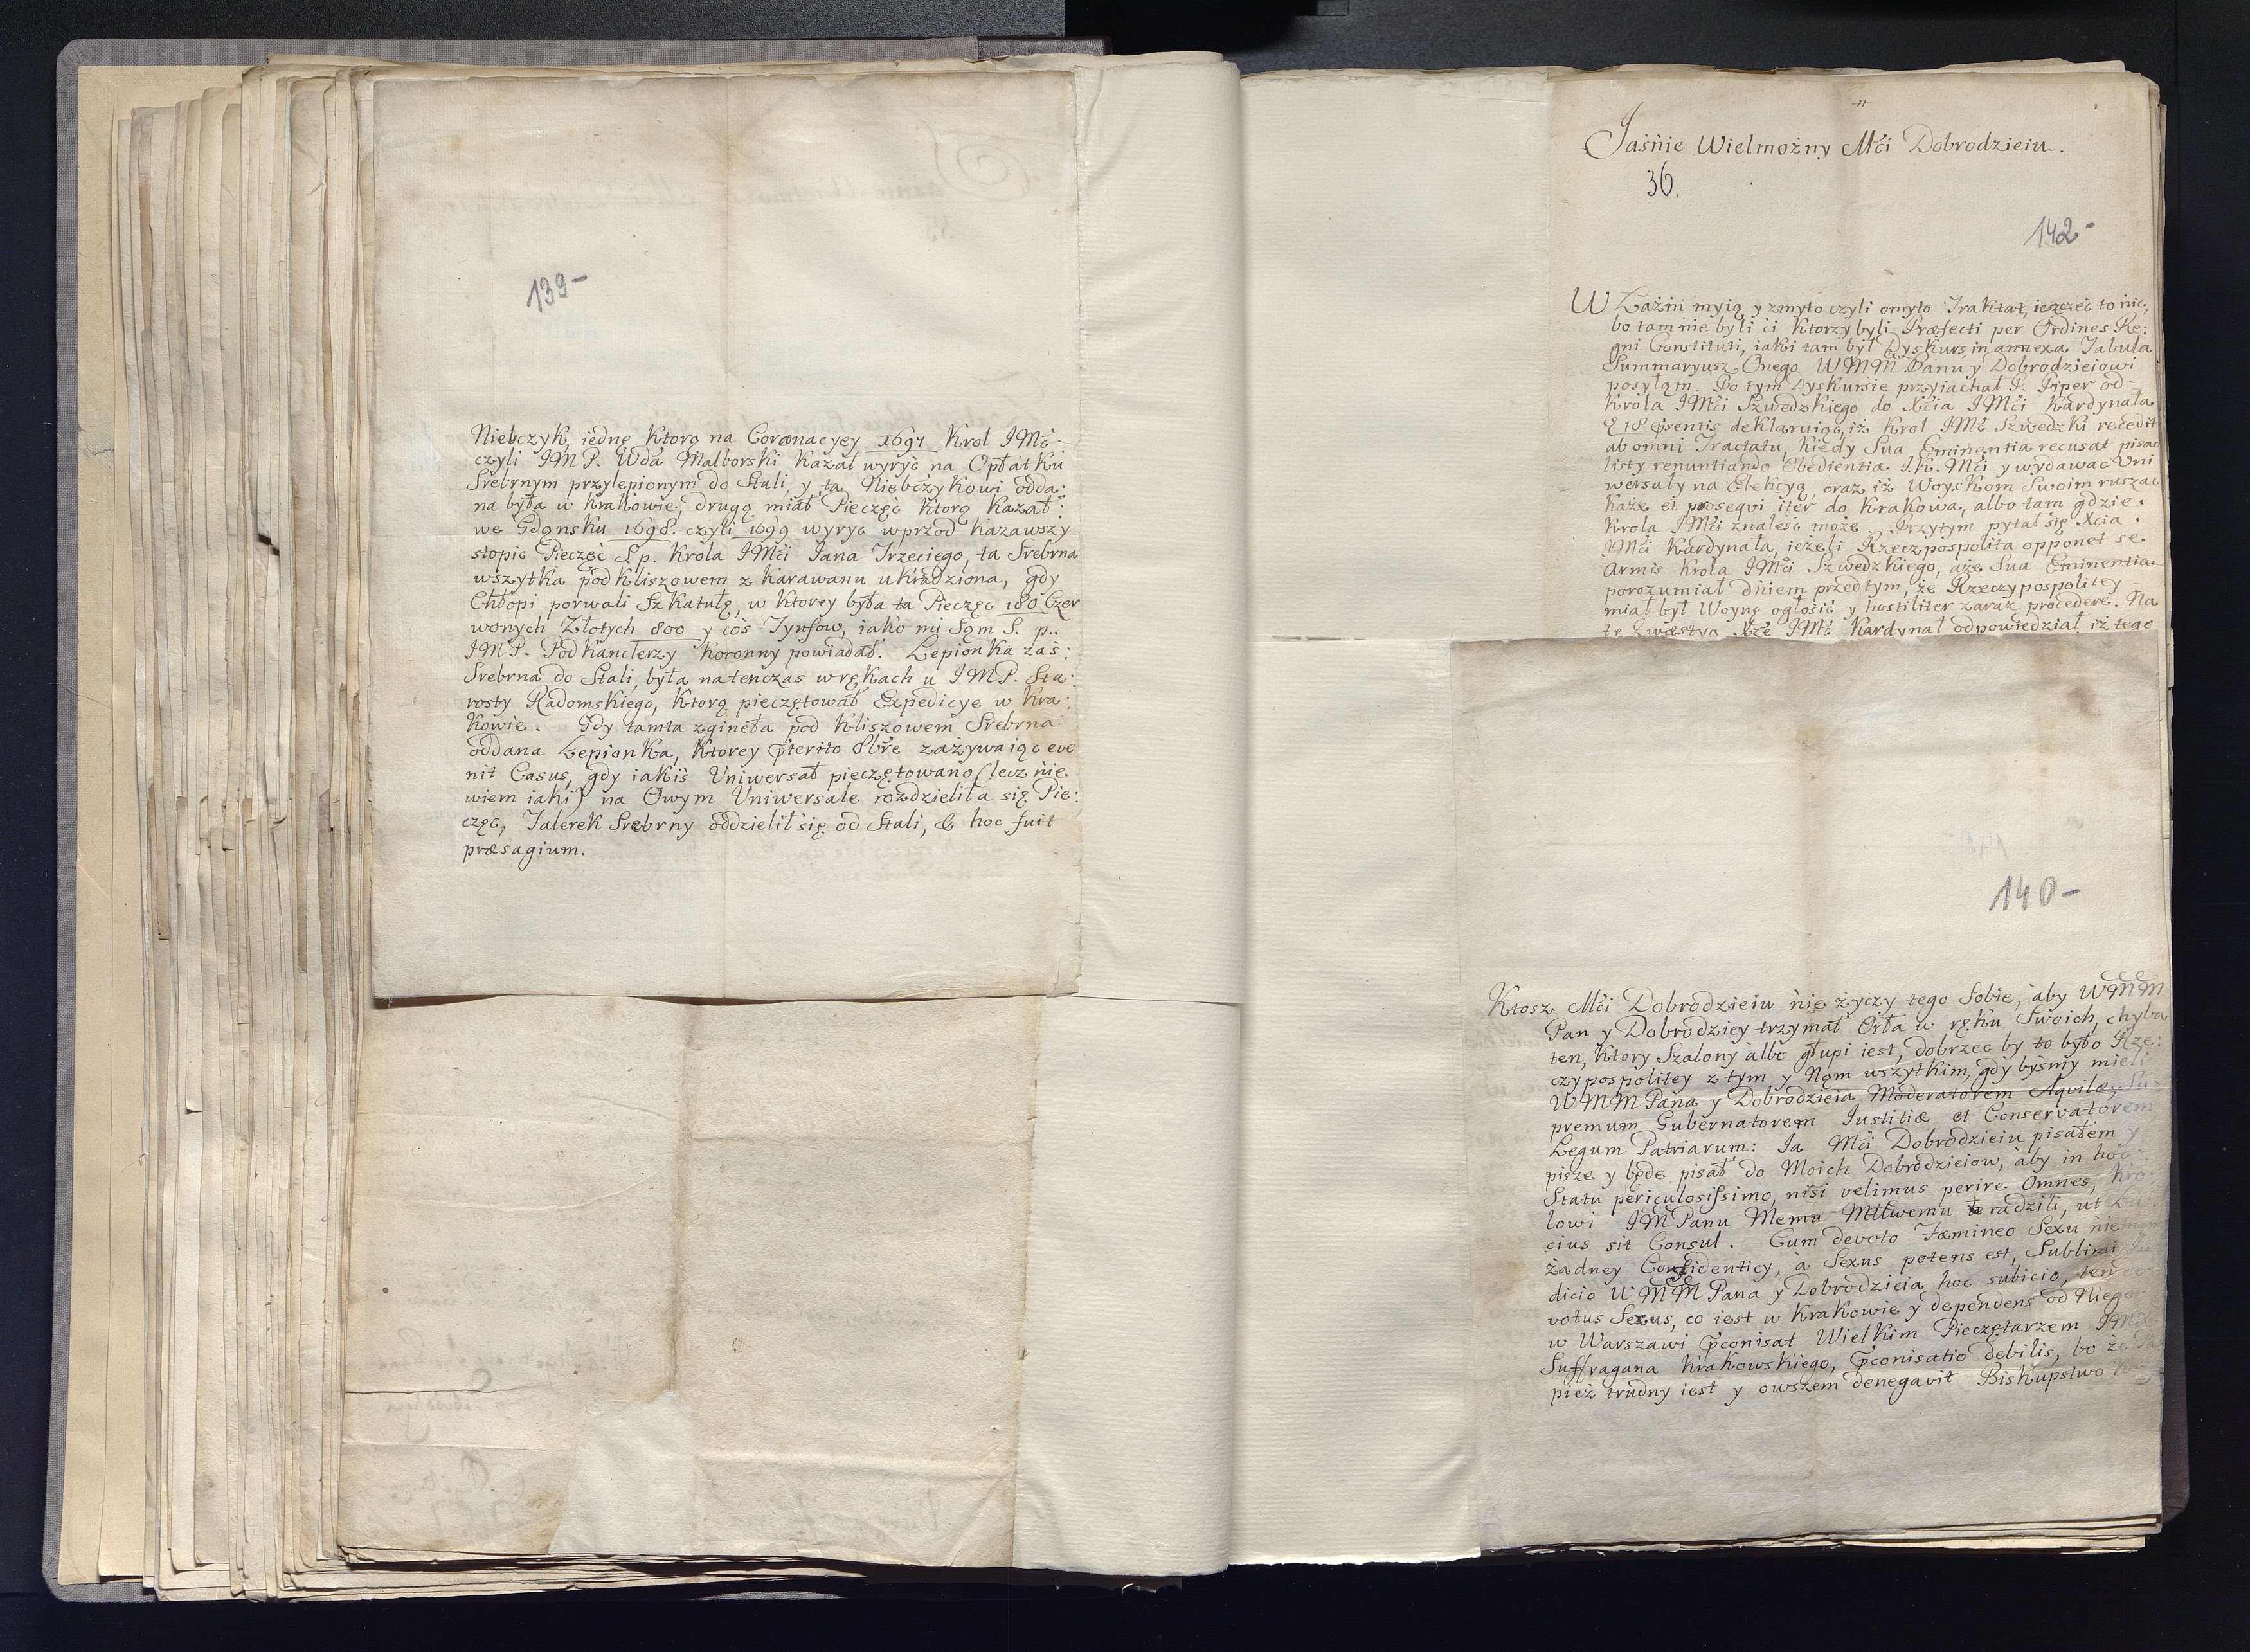 139-
Niebczyk, iednę Ktorą na Coronacyey 1697 Krol JMć
czyli JMP. Wdá Malborski Kazał wyryć na Opłátku
Srebrnym przylepionym do Stali, y ta Niebczykowi odda:
na była w Krakowie, drugą miał Pieczęć Ktorą Kazał:
we Gdonsku 1698. czyli 1699 wyryć wprzod Kazawszy
stopić Pieczęć S.p. Krola JMći Jana Trzeciego, ta Srebrna
wszytka pod Kliszowem z Karawanu ukradziona, gdy
Chłopi porwali Szkatułę, w Ktorey była ta Pieczęć 180 Czer
wonych Złotych 800 y cos Tynfow, iako mi Sąm S. p..
JMP. Podkanclerzy Koronny powiadał. Lepionka zaś:
Srebrna do Stali, była natenczas w rękach u JMP. Sta:
rosty Radomskiego, Ktorą pieczętował Expedicye w Kra:
kowie. Gdy tamta zginęła pod Kliszowem Srebrna
oddana Lepionka, Ktorey pterito 8bre zażywaiąc eve
nit Casus, gdy iakiś Uniwersał pieczętowano (lecz nie
wiem iaki) na Owym Uniwersale rozdzieliła się Pie:
częć, Talerek Srebrny oddzielił się od Stali, & hoc fuit
præsagium.
Jaśnie Wielmożny Mći Dobrodzieiu.
36.
142-
W Łaźni myią, y zmyto czyli omyto Traktat, ieszcześ to nic,
bo tam nie byli ći Ktorzy byli Præfecti per Ordines Re:
gni Constituti, iaki tam był Dyskurs, in annexa Tabula
Summaryusz Onego WMM Panu y Dobrodzieiowi
posyłąm. Po tym Dyskursie przyiachał P. Piper od
Krola JMći Szwedzkiego do Xćia JMći Kardynała
18 prentis deklaruiąc, iż Krol JMć Szwedzki recedit
ab omni Tractatu, Kiedy Sua Eminentia recusat pisać
listy renuntiando Obedientia J.K. Mći y wydawać Uni
wersały na Elekcyą, oraz iż Woyskom Swoim ruszać
Każe et proseqvi iter do Krakowa, albo tam gdzie
Krola JMći znaleść może. Przytym pytał się Xcia
JMći Kardynała, ieżeli Rzeczpospolita opponet se
armis Krola JMći Szwedzkiego, aże Sua Eminentia
porozumiał dniem przedtym, że Rzeczypospolitey
miał był Woynę ogłosić y hostiliter zaraz procedere. Na
tę Xże JMć Kardynał odpowiedział, iż tego
140-
Ktosz Mći Dobrodzieiu nie życzy tego Sobie, aby WMM
Pan y Dobrodziey trzymał Orła w ręku Swoich, chyba
ten, Ktory Szalony albo głupi iest, dobrzec by to było Rze:
czypospolitey z tym y Nąm wszytkim, gdy byśmy mieli
WMM Pana y Dobrodzieia Moderatorem Aquilæ, Su
premum Gubernatorem Iustitiæ et Conservatorem
Legum Patriarum: Ia Mći Dobrodzieiu pisałem y
pisze y będe pisał do Moich Dobrodzieiow, aby in hoc
Statu periculosissimo, nisi velimus perire Omnes, Kro
lowi JM Panu Memu Mttwemu radzili, ut Lu
cius sit Consul. Cum devoto Fæmineo Sexu niemąm
żadney Confidentiey, à Sexus potens est, Sublimi Ju
dicio WMM Pana y Dobrodzieia hoc subicio, ten
votus Sexus, co iest w Krakowie y dependens od Niego
w Warszawi pconisat Wielkim Pieczętarzem JMX
Suffragana Krakowskiego, pconisatio debilis, bo że Pa
pież trudny iest y owszem denegavit Biskupstwo